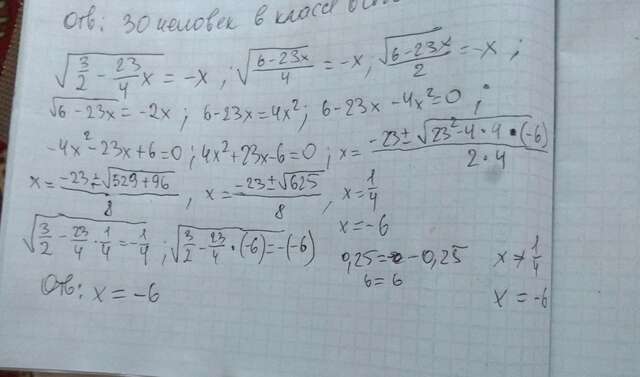 Отв: 30 человек в классе
√(3/2 - 23/4 x) = -x ; √((6-23x)/4) = -x, √(6-23x)/2 = -x ;
√(6-23x) = -2x ; 6-23x = 4x² ; 6-23x-4x² = 0 ;
-4x²-23x+6=0 ; 4x²+23x-6=0 ; x = (-23±√(23²-4·4·(-6)))/(2·4)
x = (-23±√(529+96))/8 , x = (-23±√625)/8 , x = 1/4
x = -6
√(3/2 - 23/4 · 1/4) = -1/4 ; √(3/2 - 23/4 · (-6)) = -(-6)
0,25 = -0,25 x ≠ 1/4
6 = 6 x = -6
Отв: x = -6